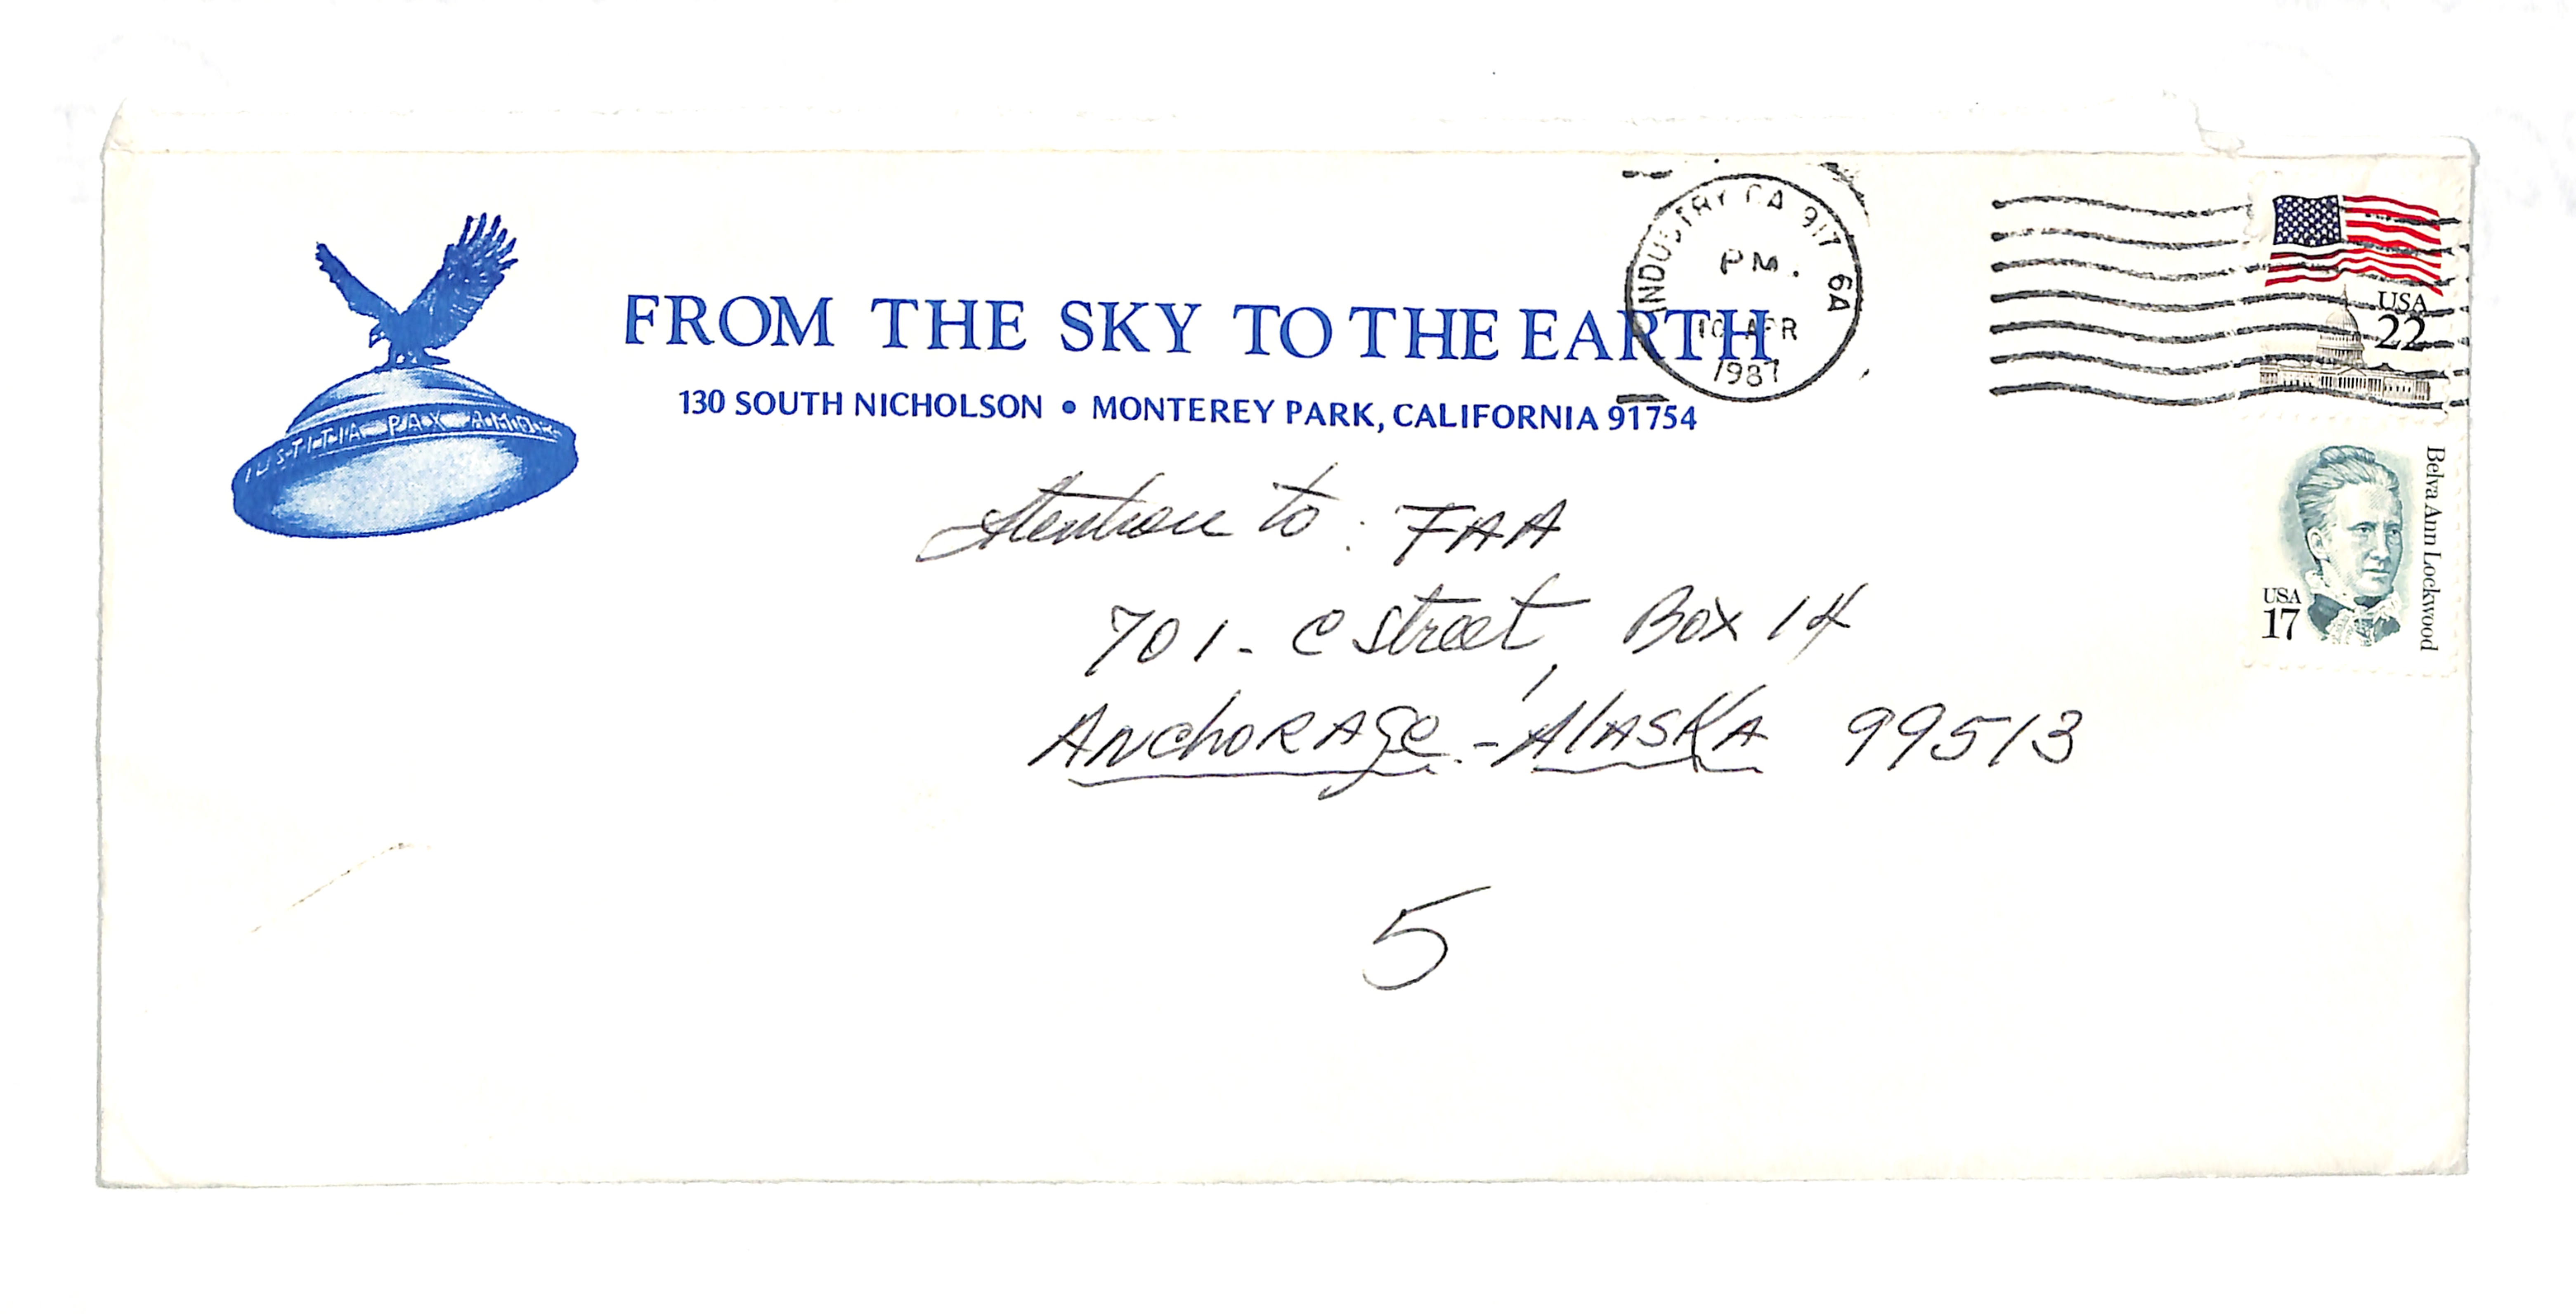 FROM THE SKY TO THE EARTH
130 SOUTH NICHOLSON • MONTEREY PARK, CALIFORNIA 91754
IUSTITIA PAX AMOR
INDUSTRY CA 917 6A
PM.
10 APR
1987
USA
22
Belva Ann Lockwood
USA
17
Attention to: FAA
701- C Street, Box 14
Anchorage - Alaska 99513
5